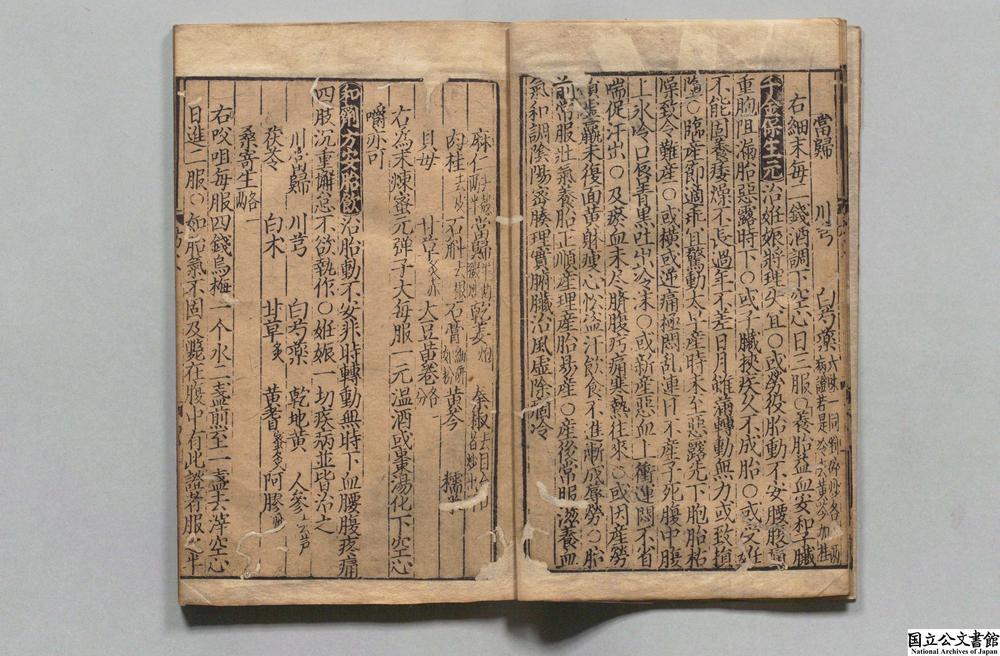 當歸 川芎 白芍藥
右細末每二錢酒調下空心日三服○養胎益血安和子臟
千金保生元治姙娠將理失宜○或勞役胎動不安腰腹痛
重胞阻漏胎惡露時下○或子臟挾疾久不成胎○或受
不能固養痿燥不長過年不差日月雖滿轉動無力或致損
墮○臨產節適乖宜驚動太早產時未至惡露先下胞胎枯
燥致令難產○或橫或逆痛極悶亂連日不產子死腹中腹
上冰冷口唇青黑吐出冷沫○或新產惡血上衝運悶不省
喘促汗出○及瘀血未尽臍腹㽲痛寒熱往來○或因產勞
損虛羸未復面黄心忪盗汗飲食不進漸成蓐勞○
前常服壯氣養胎正順產理產胎易產○產後常服滋養血
氣和調陰陽密腠理實腑臟治風虛除痼冷
麻仁 當歸 乾姜 秦椒
肉桂 石斛去根 石膏細研如粉 糯米
貝母 甘草炙 大豆黄卷 黄芩
右為末煉蜜元弹子大每服一元温酒或棗湯化下空心
嚼亦可
和劑方安胎飲治胎動不安非時轉動無時下血腰腹疼痛
四肢沉重懈怠不欲執作○姙娠一切疾病並皆治之
川當歸 川芎 白芍藥 乾地黄 人參去芦
茯苓 白术 甘草炙 黄耆 阿膠
桑寄生
右㕮咀每服四錢烏梅一个水二盞煎至一盞去滓空心
日進二服○如胎氣不固及斃在腹中有此證者服之平
国立公文書館
National Archives of Japan